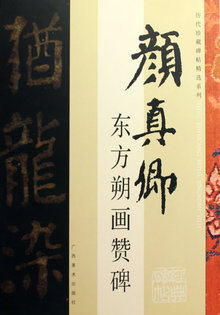 历代珍藏碑帖精选系列
顔真卿
东方朔画赞碑
猶龍染
广西美术出版社